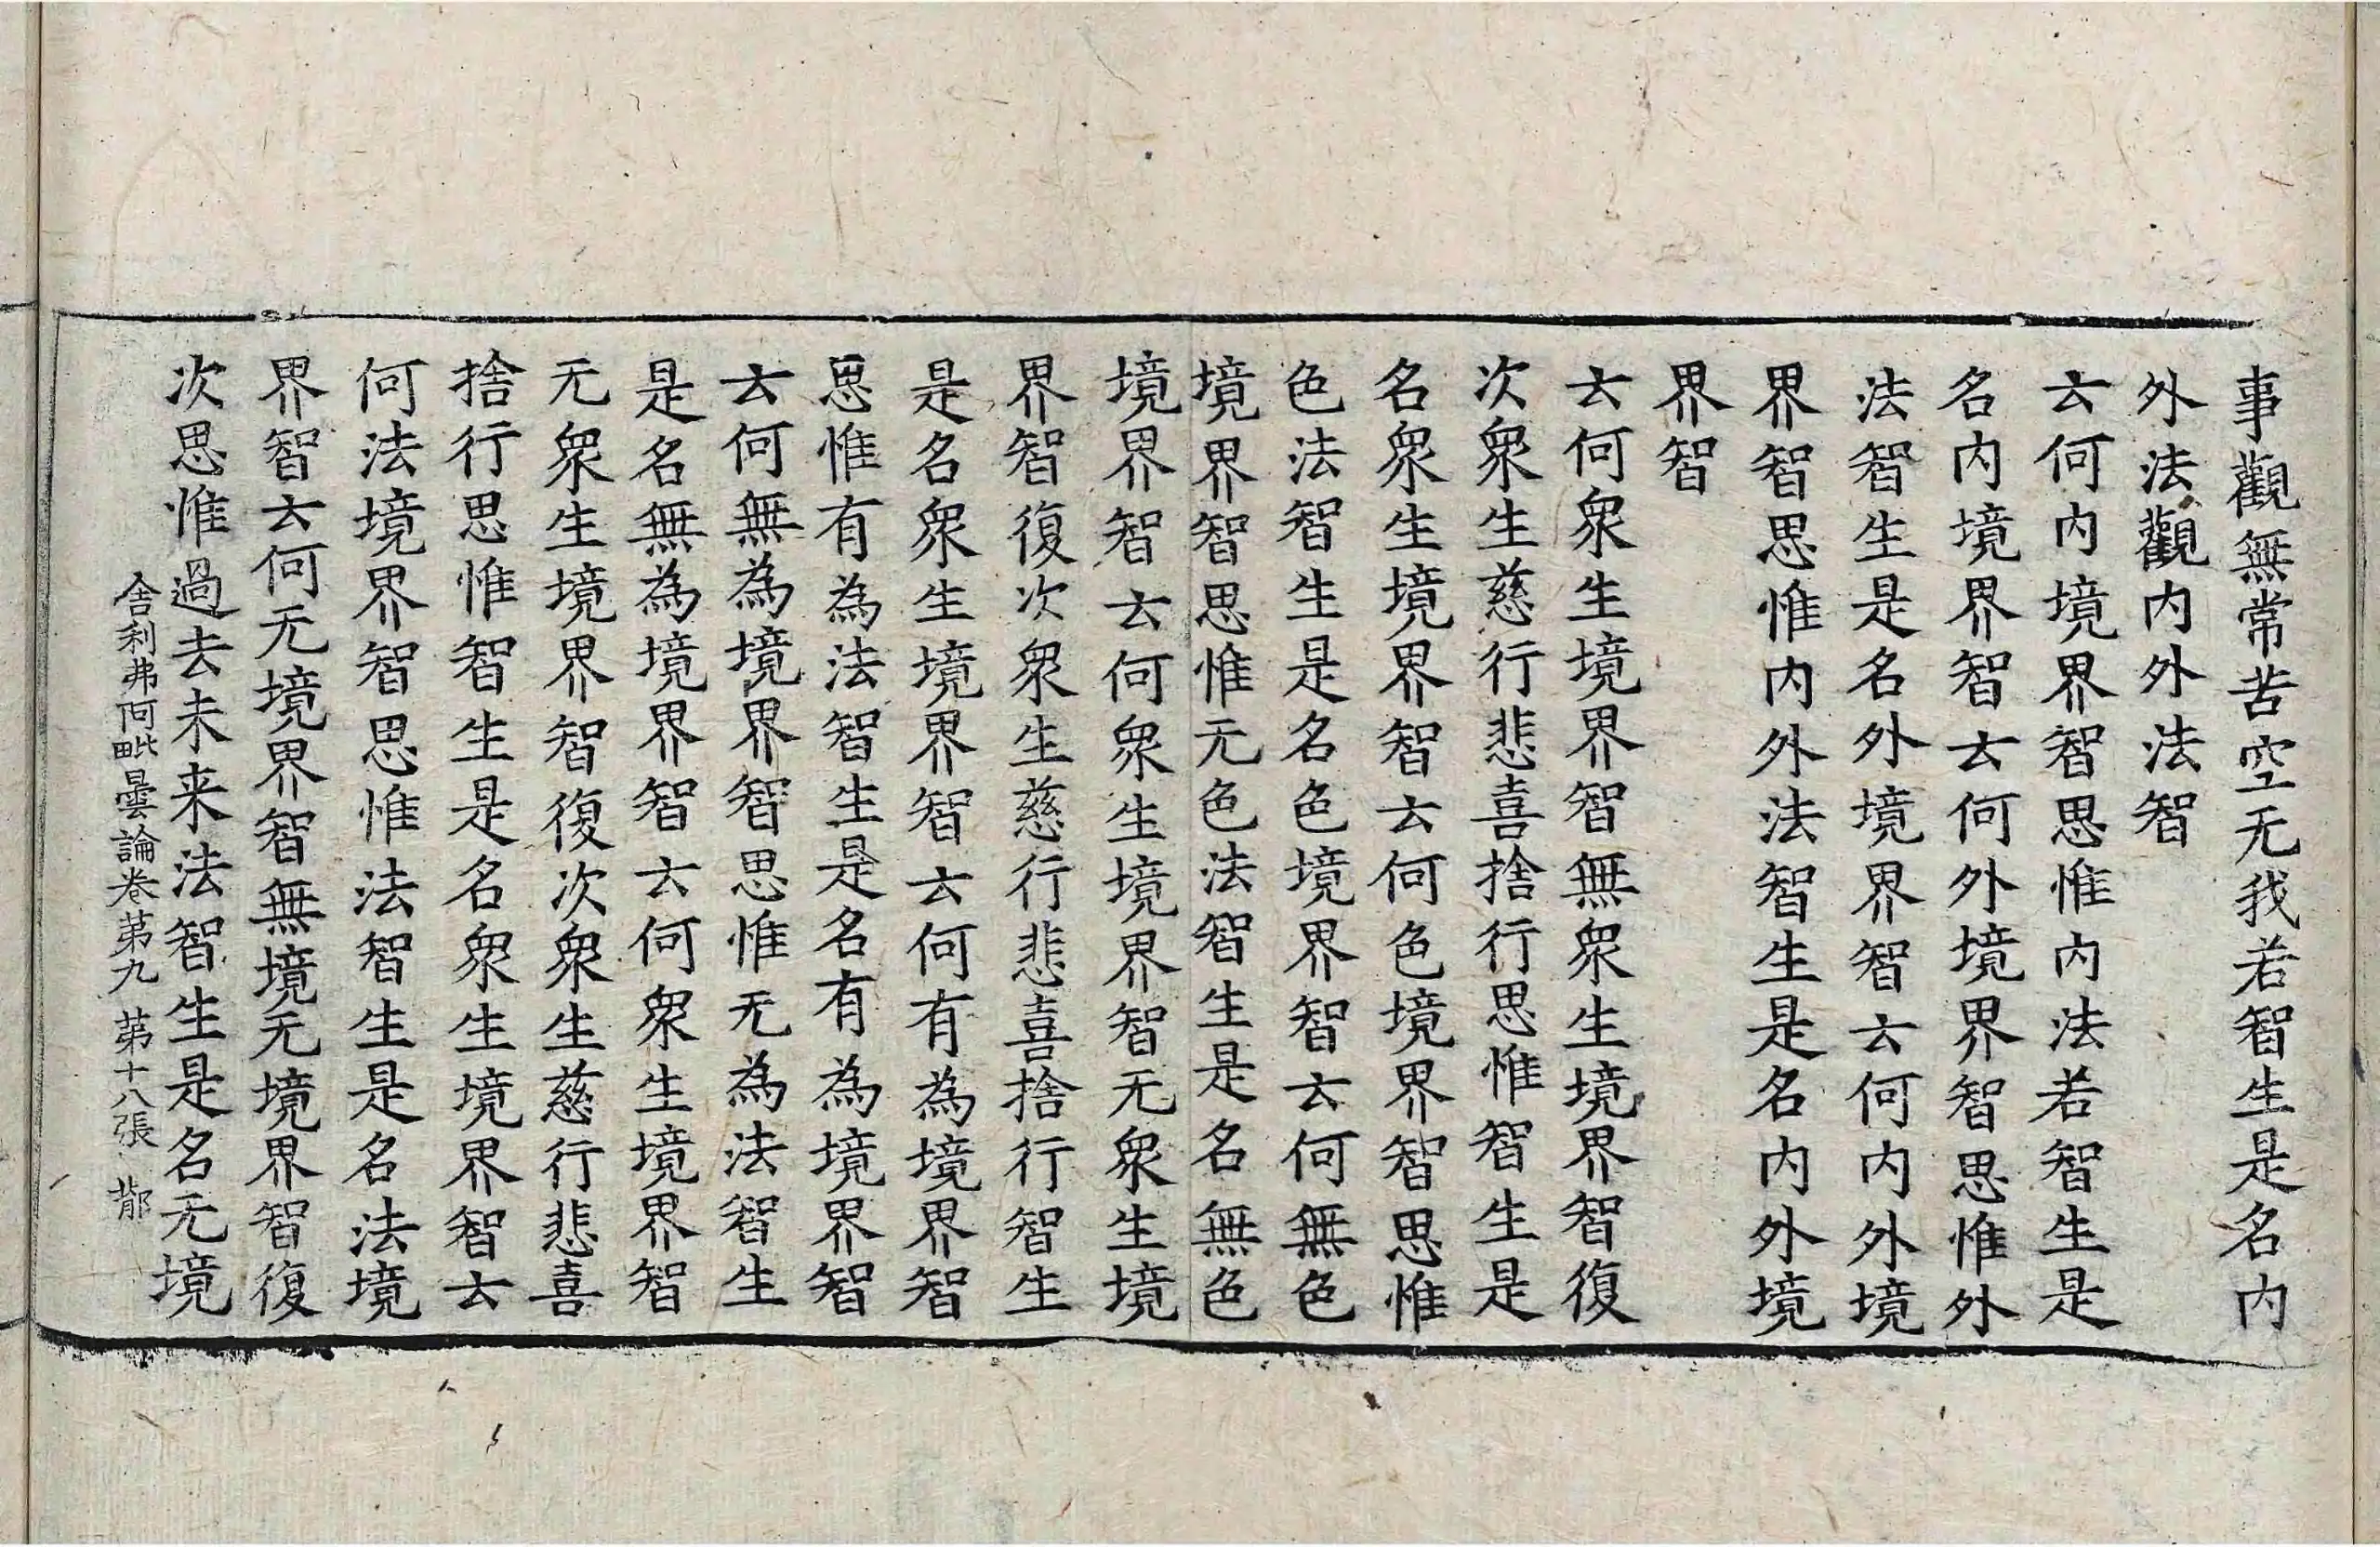 事觀無常苦空无我若智生是名内
外法觀内外法智
云何内境界智思惟内法若智生是
名内境界智云何外境界智思惟外
法智生是名外境界智云何内外境
界智思惟内外法智生是名内外境
界智
云何衆生境界智無衆生境界智復
次衆生慈行悲喜捨行思惟智生是
名衆生境界智云何色境界智思惟
色法智生是名色境界智云何無色
境界智思惟无色法智生是名無色
境界智云何衆生境界智无衆生境
界智復次衆生慈行悲喜捨行智生
是名衆生境界智云何有為境界智
思惟有為法智生是名有為境界智
云何無為境界智思惟无為法智生
是名無為境界智云何衆生境界智
无衆生境界智復次衆生慈行悲喜
捨行思惟智生是名衆生境界智云
何法境界智思惟法智生是名法境
界智云何无境界智無境无境界智復
次思惟過去未来法智生是名无境
舍利弗阿毗曇論卷第九 第十八張